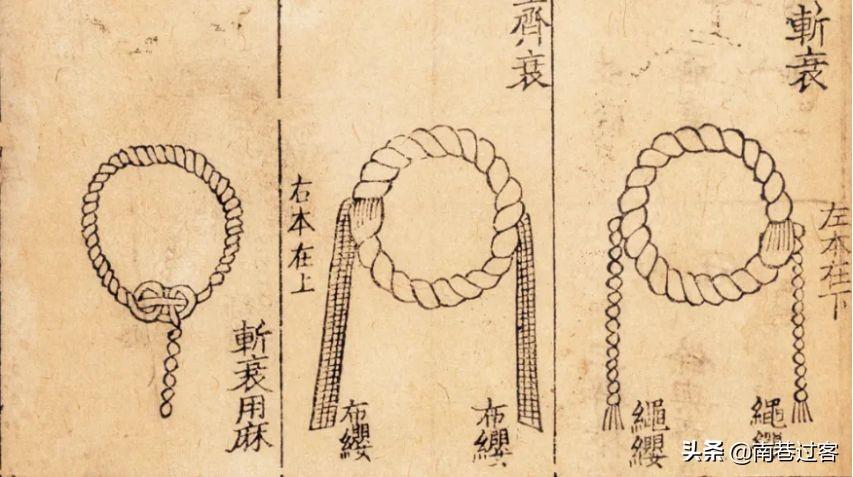 斬衰
左本在下
繩纓
繩纓
齊衰
右本在上
布纓
布纓
斬衰用麻
头条 @南巷过客